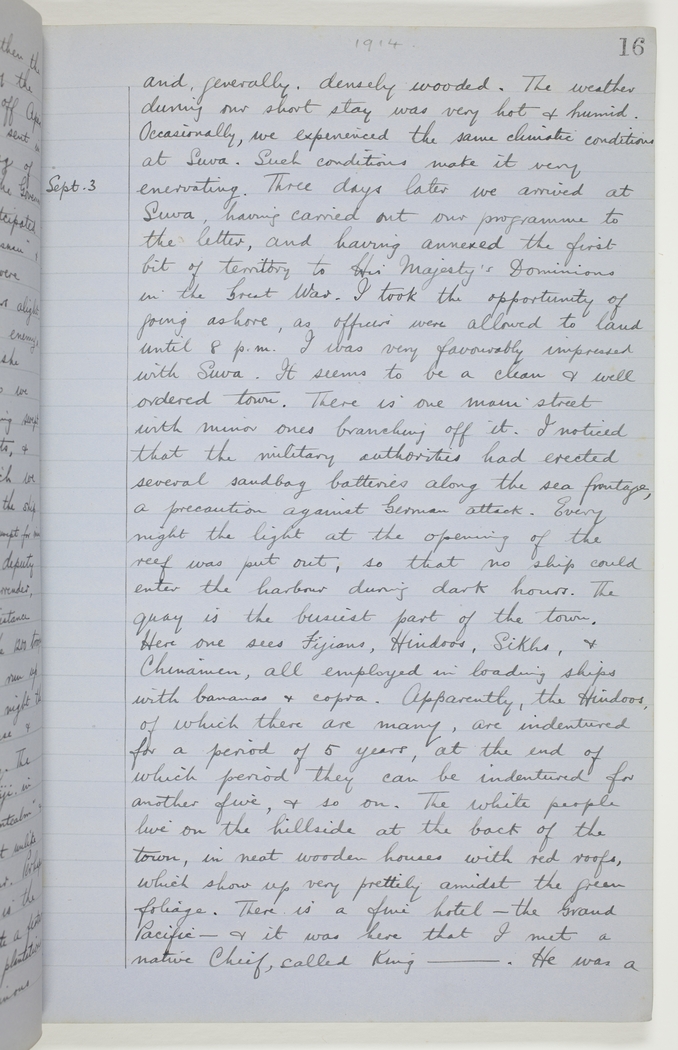 1914.
16
and, generally, densely wooded. The weather
during our short stay was very hot & humid.
Occasionally, we experienced the same climatic conditions
at Suva. Such conditions make it very
Sept. 3 enervating. Three days later we arrived at
Suva, having carried out our programme to
the letter, and having annexed the first
bit of territory to His Majesty's Dominions
in the Great War. I took the opportunity of
going ashore, as officers were allowed to land
until 8 p.m. I was very favourably impressed
with Suva. It seems to be a clean & well
ordered town. There is one main street
with minor ones branching off it. I noticed
that the military authorities had erected
several sandbag batteries along the sea frontage,
a precaution against German attack. Every
night the light at the opening of the
reef was put out, so that no ship could
enter the harbour during dark hours. The
quay is the busiest part of the town.
Here one sees Fijians, Hindoos, Sikhs, &
Chinamen, all employed in loading ships
with bananas & copra. Apparently, the Hindoos,
of which there are many, are indentured
for a period of 5 years, at the end of
which period they can be indentured for
another five, & so on. The white people
live on the hillside at the back of the
town, in neat wooden houses with red roofs,
which show up very prettily amidst the green
foliage. There is a fine hotel — the Grand
Pacific — & it was here that I met a
native Cheif, called King ———. He was a